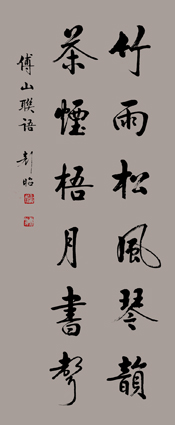 竹雨松風琴韻
茶煙梧月書聲
傅山聯語 彭昭